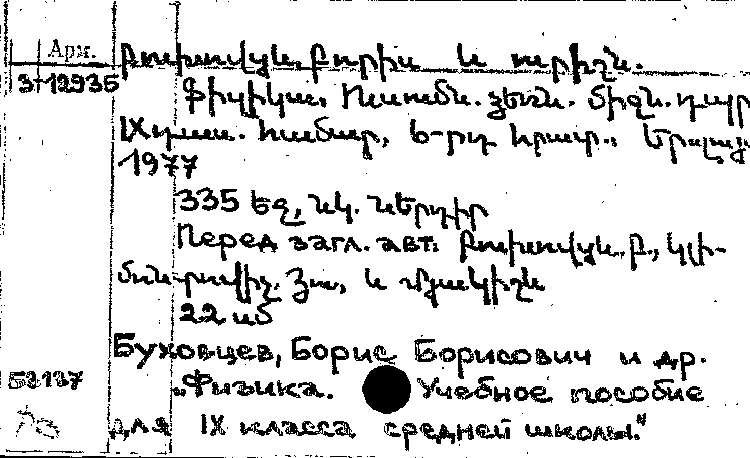 Арм.
Բուխովցև, Բորիս և ուրիշն.
3-12935
Ֆիզիկա. Ուսումն. ձեռն. միջն. դպր
IX դաս. համար, 6-րդ հրատ.,
1977
335 եջ, նկ. ներդիր
Перед загл. авт: Բուխովցև, Բ., Կլի-
մոնտովիչ, Յու, և Մյակիշև
22 սմ
Буховцев, Борис Борисович и др.
52137
„Физика. Учебное пособие
для IX класса средней школы."